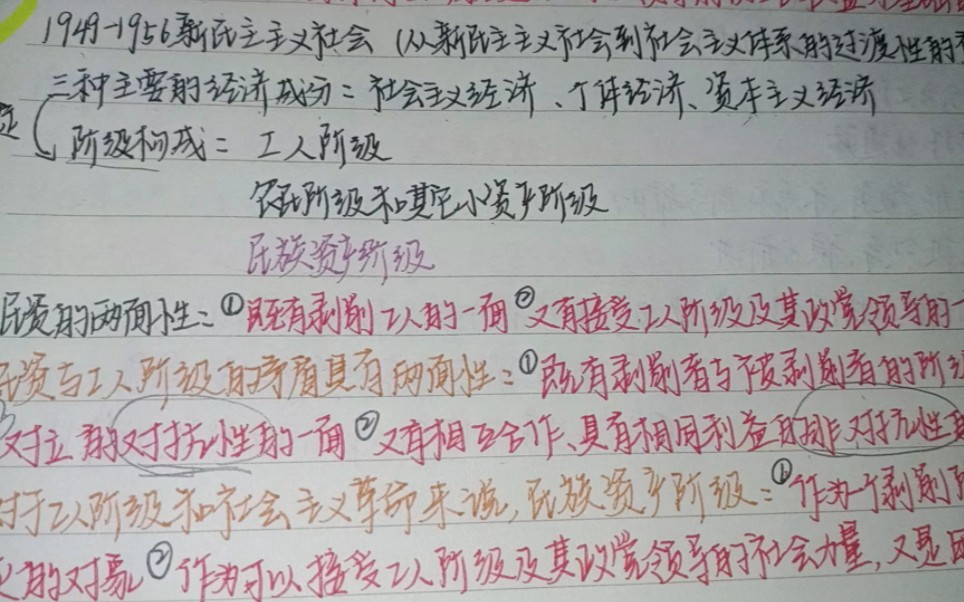 1949-1956新民主主义社会（从新民主主义社会到社会主义体系的过渡性的
三种主要的经济成分：社会主义经济、个体经济、资本主义经济
阶级构成：工人阶级
农民阶级和其它小资产阶级
民族资产阶级
民资的两面性：①既有剥削工人的一面②又有接受工人阶级及其政党领导的一
民资与工人阶级的矛盾具有两面性：①既有剥削者与被剥削者的阶级
对立的对抗性的一面②又有相互合作、具有相同利益的非对抗性
对于工人阶级和社会主义革命来说，民族资产阶级：①作为一个剥削阶
的对象②作为可以接受工人阶级及其政党领导的社会力量，又是